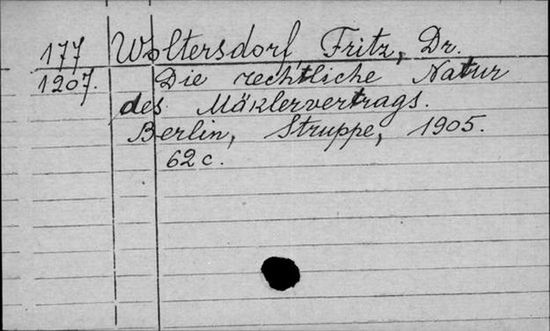 177 Woltersdorf, Fritz, Dr.
1207. Die rechtliche Natur
des Mäklervertrags.
Berlin, Struppe, 1905.
62 c.